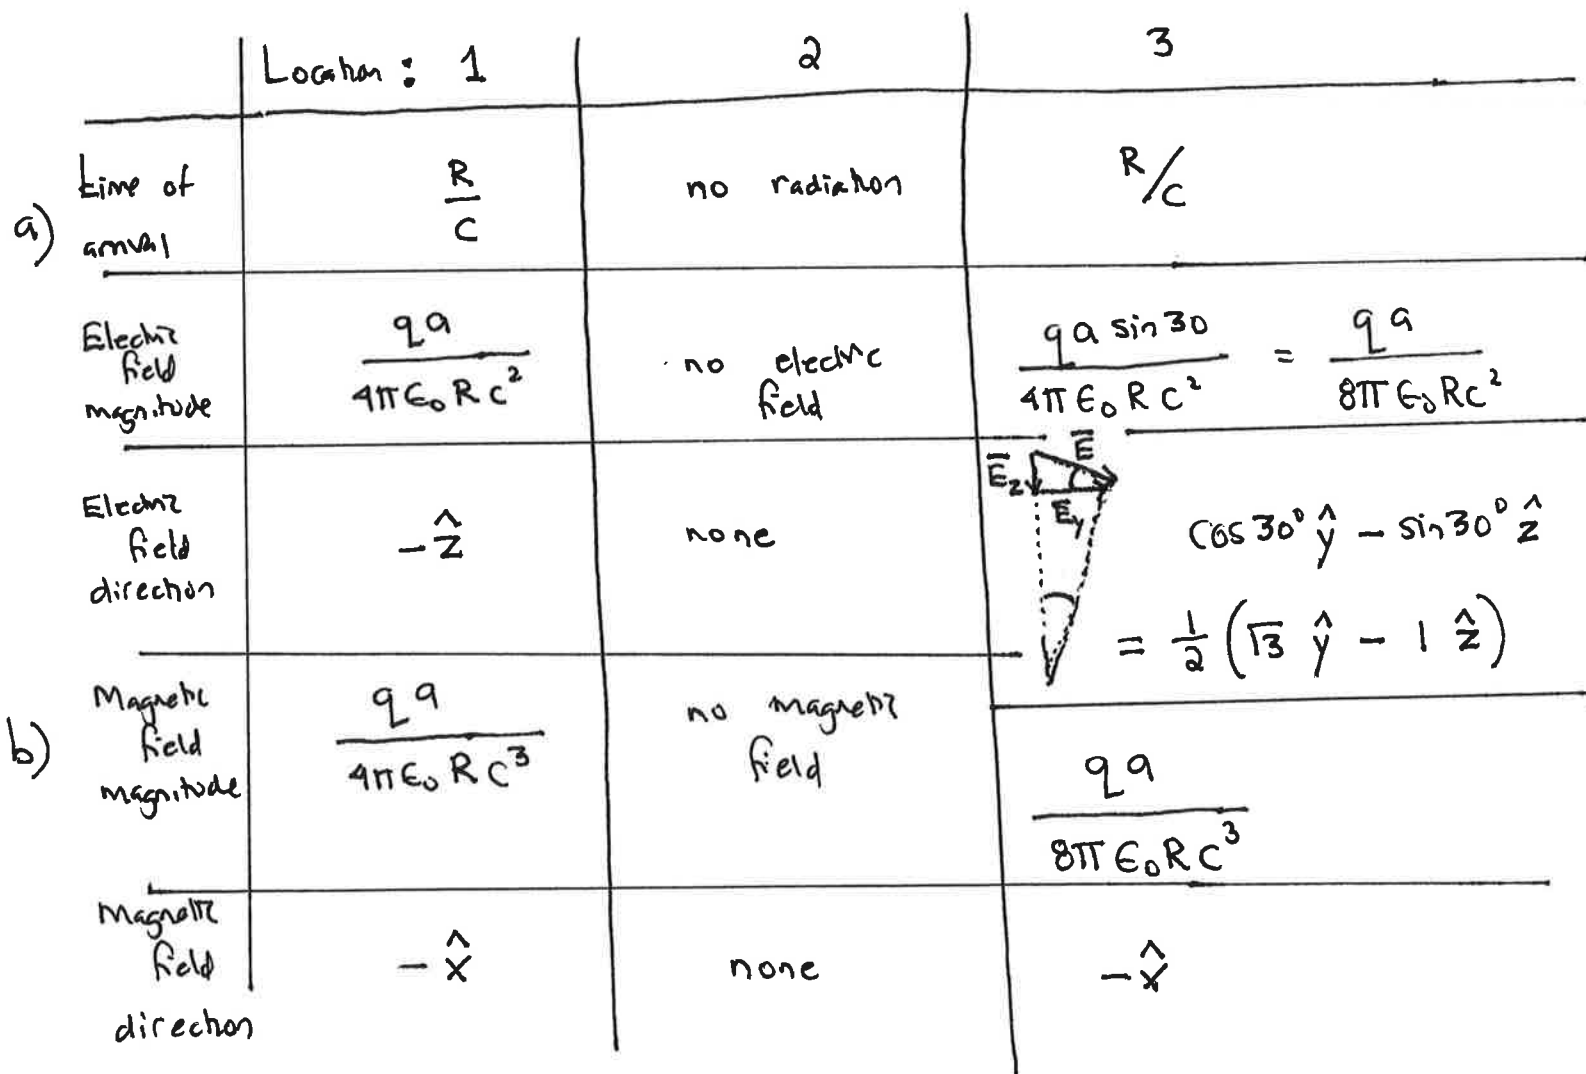 Location : 1 2 3
a) time of arrival R/c no radiation R/c
Electric field magnitude qa / 4πε₀Rc² no electric field qa sin30 / 4πε₀Rc² = qa / 8πε₀Rc²
E⃗
E⃗z
E⃗y
Electric field direction −ẑ none cos30° ŷ − sin30° ẑ
= 1/2 (√3 ŷ − 1 ẑ)
b) Magnetic field magnitude qa / 4πε₀Rc³ no magnetic field qa / 8πε₀Rc³
Magnetic field direction −x̂ none −x̂